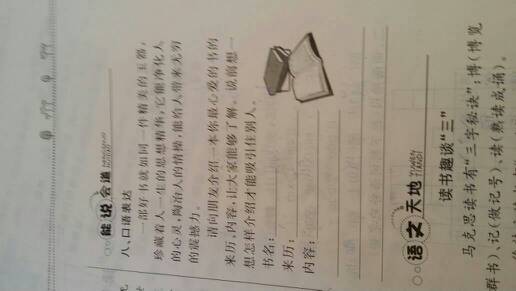 能说会道
八、口语表达
一部好书就如同一件精美的玉器，
珍藏着人一生的思想精华，它能净化人
的心灵，陶冶人的情操，能给人带来无穷
的震撼力。
请向朋友介绍一本你最心爱的书的
来历、内容，让大家能够了解。说前想一
想怎样介绍才能吸引住别人。
书名：
来历：
内容：
语文天地
读书趣谈“三”
马克思读书有“三字秘诀”：博（博览
群书）、记（做记号）、读（熟读成诵）。